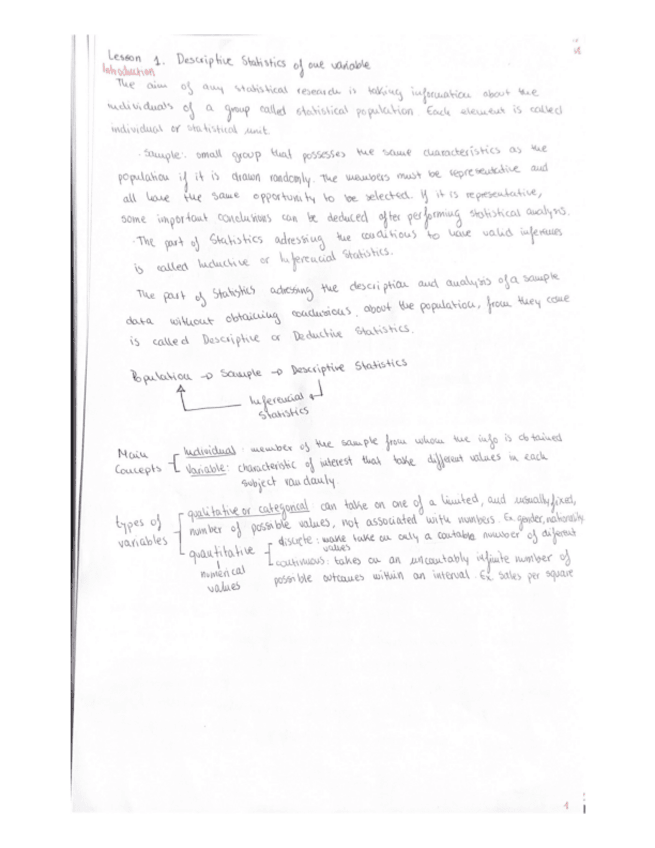 Lesson 1. Descriptive Statistics of one variable
Introduction
The aim of any statistical research is taking information about the
individuals of a group called statistical population. Each element is called
individual or statistical unit.
· Sample: small group that possesses the same characteristics as the
population if it is drawn randomly. The members must be representative and
all have the same opportunity to be selected. If it is representative,
some important conclutions can be deduced after performing statistical analysis.
· The part of Statistics adressing the conditions to have valid inferences
is called Inductive or Inferencial Statistics.
The part of Statistics adressing the description and analysis of a sample
data without obtaining conclusions about the population, from they come
is called Descriptive or Deductive Statistics.
Population → Sample → Descriptive Statistics
Inferencial
Statistics
Main
Concepts
Individual: member of the sample from whom the info is obtained
Variable: characteristic of interest that take different values in each
subject randomly.
types of
variables
qualitative or categorical can take on one of a limited, and usually fixed,
number of possible values, not associated with numbers. Ex. gender, nationality.
quantitative
numerical
values
discrete: take on only a countable number of different
values
continuous: takes on an uncountably infinite number of
possible outcomes within an interval. Ex. Sales per square
1